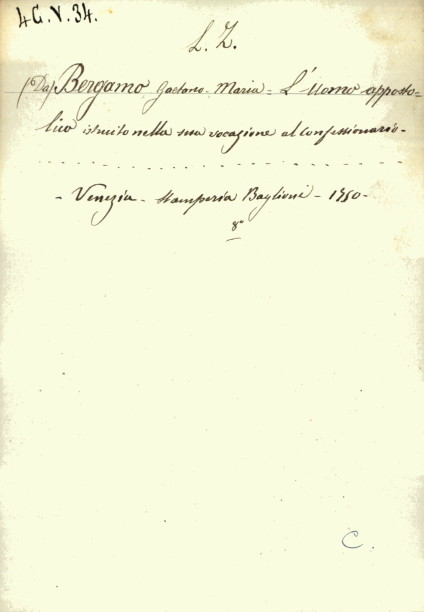 4G.V.34.
L. Z.
(Da) Bergamo Gaetano Maria = L'Uomo apposto-
lico istruito nella sua vocazione al confessionario -
- Venezia - Stamperia Baglioni - 1750 -
8°
C.